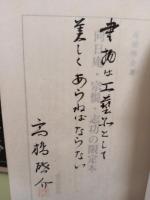 書物は工藝品として
美しくあらねばならない
高橋啓介
限定本